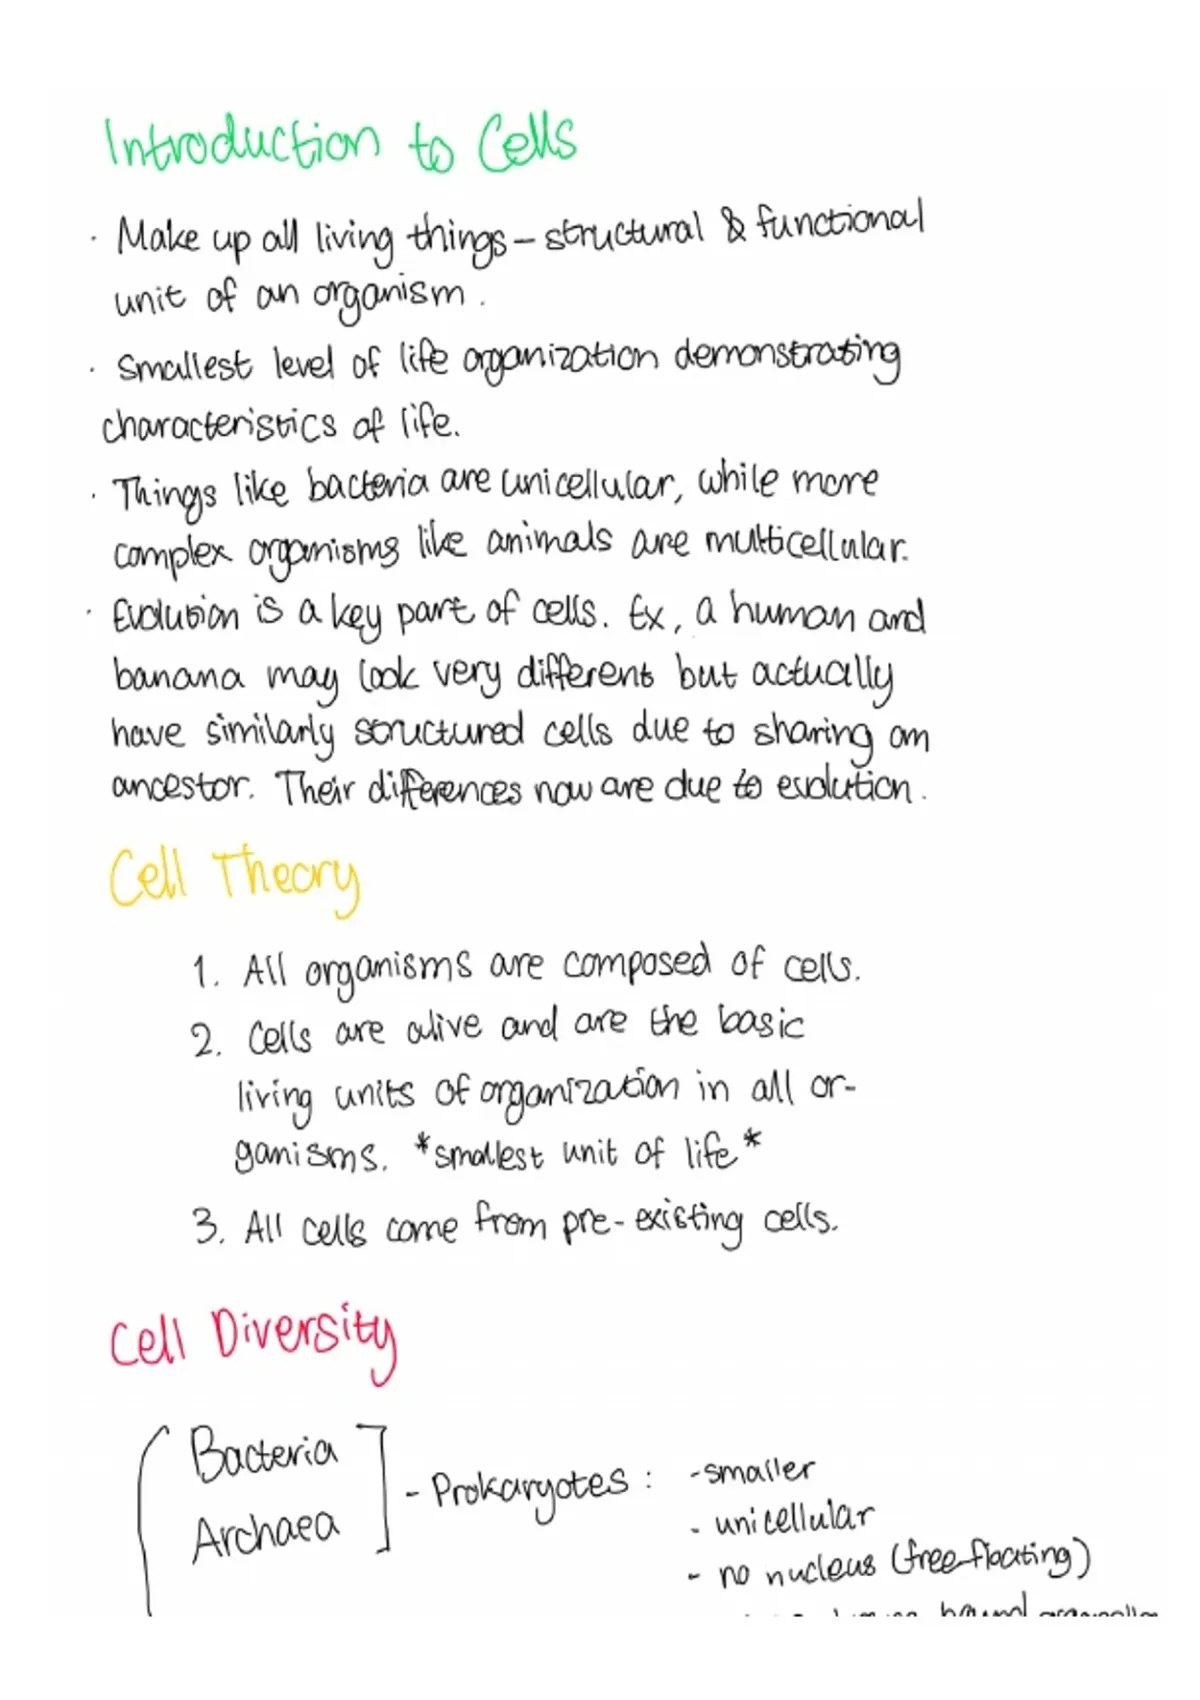 Introduction to Cells
· Make up all living things – structural & functional
unit of an organism.
· Smallest level of life organization demonstrating
characteristics of life.
· Things like bacteria are unicellular, while more
complex organisms like animals are multicellular.
· Evolution is a key part of cells. Ex, a human and
banana may look very different but actually
have similarly structured cells due to sharing an
ancestor. Their differences now are due to evolution.
Cell Theory
1. All organisms are composed of cells.
2. Cells are alive and are the basic
living units of organization in all or-
ganisms. *smallest unit of life*
3. All cells come from pre-existing cells.
Cell Diversity
Bacteria
Archaea
- Prokaryotes: - smaller
- unicellular
- no nucleus (free-floating)
bound